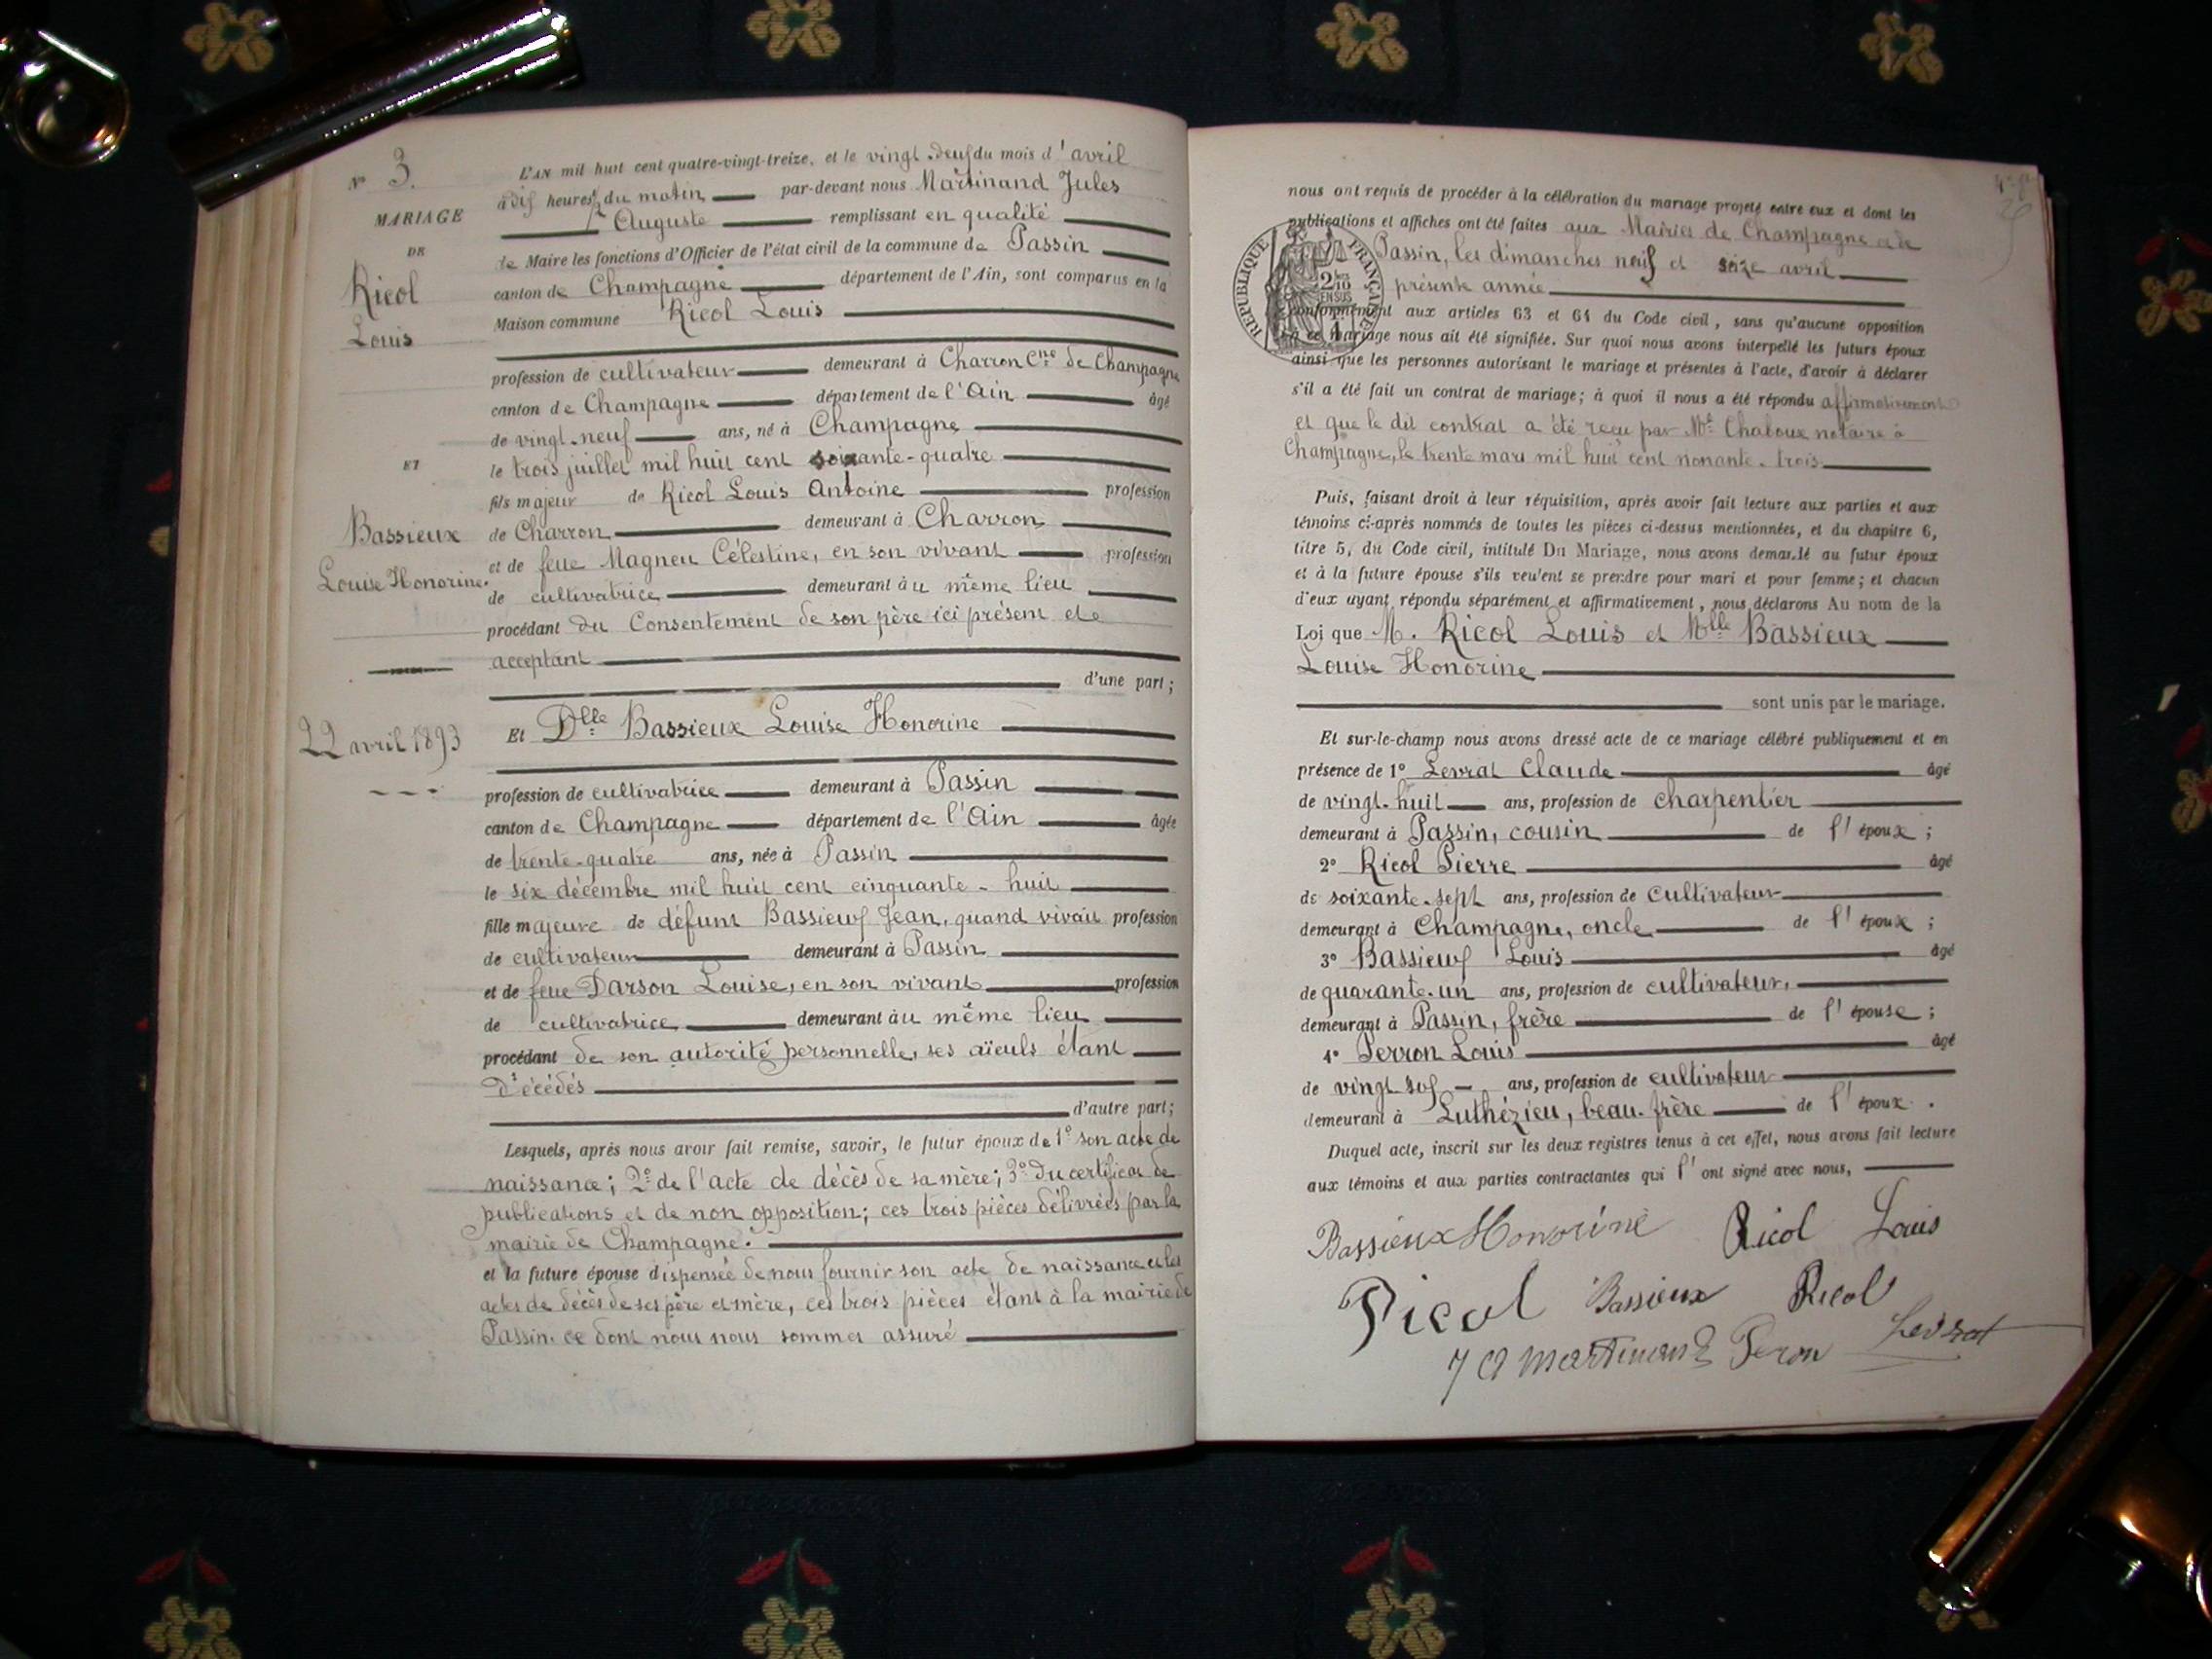 N° 3.
MARIAGE
DE
Ricol
Louis
ET
Bassieux
Louise Honorine.
22 avril 1893
L'AN mil huit cent quatre-vingt-treize, et le vingt-deux du mois d'avril
à dix heures du matin par-devant nous Martinand Jules
Auguste remplissant en qualité
de Maire les fonctions d'Officier de l'état civil de la commune de Passin
canton de Champagne département de l'Ain, sont comparus en la
Maison commune Ricol Louis
profession de cultivateur demeurant à Charron Cne de Champagne
canton de Champagne département de l'Ain âgé
de vingt-neuf ans, né à Champagne
le trois juillet mil huit cent soixante-quatre
fils majeur de Ricol Louis Antoine profession
de Charron demeurant à Charron
et de feue Magneu Célestine, en son vivant profession
de cultivatrice demeurant au même lieu
procédant du Consentement de son père ici présent et
acceptant
d'une part;
Et Dlle Bassieux Louise Honorine
profession de cultivatrice demeurant à Passin
canton de Champagne département de l'Ain âgée
de trente-quatre ans, née à Passin
le six décembre mil huit cent cinquante-huit
fille majeure de défunt Bassieux Jean, quand vivait profession
de cultivateur demeurant à Passin
et de feue Darson Louise, en son vivant profession
de cultivatrice demeurant au même lieu
procédant de son autorité personnelle, ses aïeuls étant
décédés
d'autre part;
Lesquels, après nous avoir fait remise, savoir, le futur époux de 1° son acte de
naissance; 2° de l'acte de décès de sa mère; 3° du certificat de
publications et de non opposition; ces trois pièces délivrées par la
mairie de Champagne.
et la future épouse dispensée de nous fournir son acte de naissance et les
actes de décès de ses père et mère, ces trois pièces étant à la mairie de
Passin. ce dont nous nous sommes assuré
nous ont requis de procéder à la célébration du mariage projeté entre eux et dont les
publications et affiches ont été faites aux Mairies de Champagne et de
Passin, les dimanches neuf et seize avril
présente année
RÉPUBLIQUE FRANÇAISE
conformément aux articles 63 et 64 du Code civil, sans qu'aucune opposition
à ce mariage nous ait été signifiée. Sur quoi nous avons interpellé les futurs époux
ainsi que les personnes autorisant le mariage et présentes à l'acte, d'avoir à déclarer
s'il a été fait un contrat de mariage; à quoi il nous a été répondu affirmativement
et que le dit contrat a été reçu par Me Chaloux notaire à
Champagne, le trente mars mil huit cent nonante-trois
Puis, faisant droit à leur réquisition, après avoir fait lecture aux parties et aux
témoins ci-après nommés de toutes les pièces ci-dessus mentionnées, et du chapitre 6,
titre 5, du Code civil, intitulé Du Mariage, nous avons demandé au futur époux
et à la future épouse s'ils veulent se prendre pour mari et pour femme; et chacun
d'eux ayant répondu séparément et affirmativement, nous déclarons Au nom de la
Loi que M. Ricol Louis et Mlle Bassieux
Louise Honorine
sont unis par le mariage.
Et sur-le-champ nous avons dressé acte de ce mariage célébré publiquement et en
présence de 1° Levrat Claude âgé
de vingt-huit ans, profession de charpentier
demeurant à Passin, cousin de l'époux;
2° Ricol Pierre âgé
de soixante-sept ans, profession de cultivateur
demeurant à Champagne, oncle de l'époux;
3° Bassieux Louis âgé
de quarante-un ans, profession de cultivateur,
demeurant à Passin, frère de l'épouse;
4° Perron Louis âgé
de vingt-six ans, profession de cultivateur
demeurant à Luthézieu, beau-frère de l'époux.
Duquel acte, inscrit sur les deux registres tenus à cet effet, nous avons fait lecture
aux témoins et aux parties contractantes qui l'ont signé avec nous,
Bassieux Honorine Ricol Louis
Ricol Bassieux Ricol
J A Martinand Peron Levrat